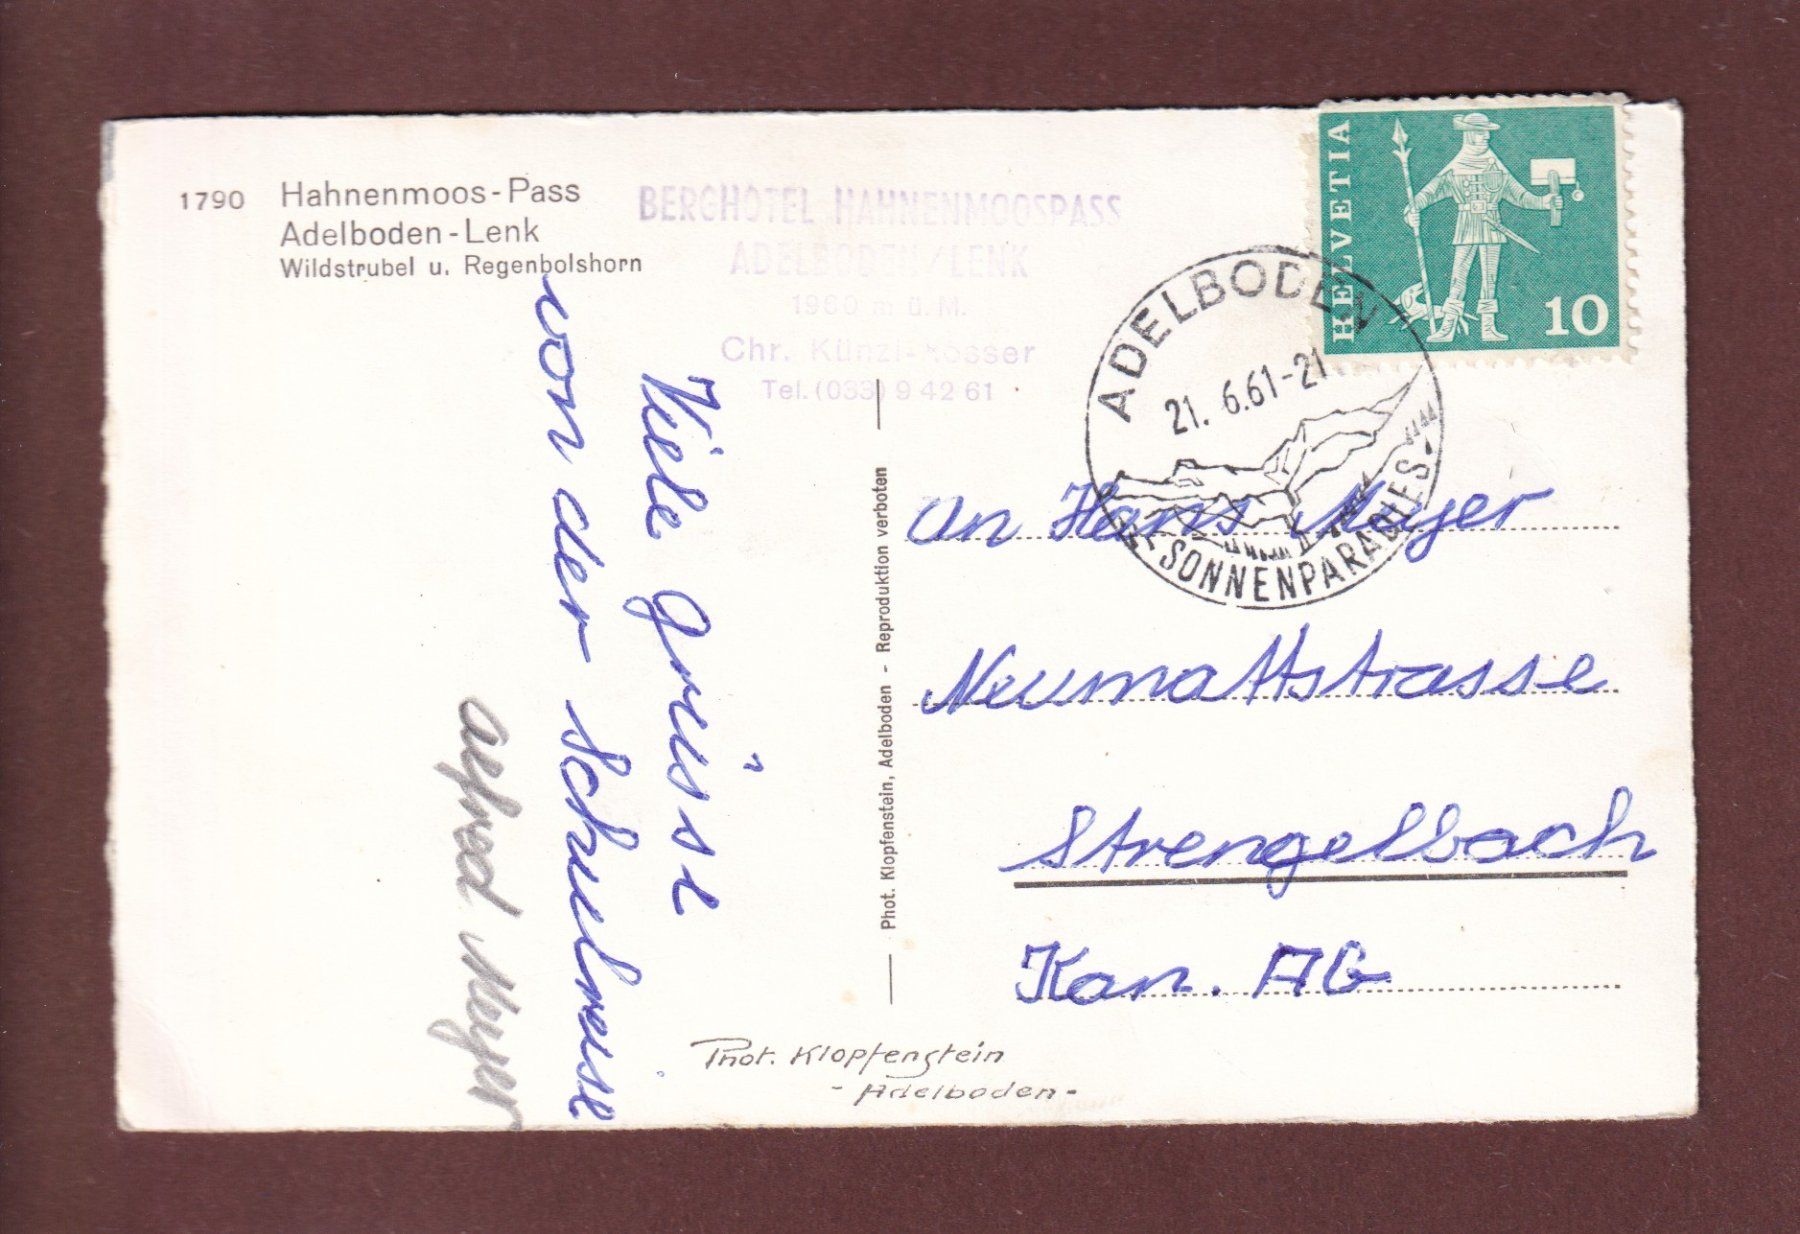 1790 Hahnenmoos-Pass
Adelboden-Lenk
Wildstrubel u. Regenbolshorn
BERGHOTEL HAHNENMOOSPASS
ADELBODEN/LENK
1960 m ü. M.
Chr. Künzi-Rosser
Tel. (033) 9 42 61
HELVETIA
10
ADELBODEN
21. 6.61-21
-SONNENPARADIES-
Viele grüsse
von der Schulreise
Alfred Myer
Phot. Klopfenstein, Adelboden - Reproduktion verboten
An Hans Myer
Neumattstrasse
Strengelbach
Kan. AG
Phot. Klopfenstein
- Adelboden -